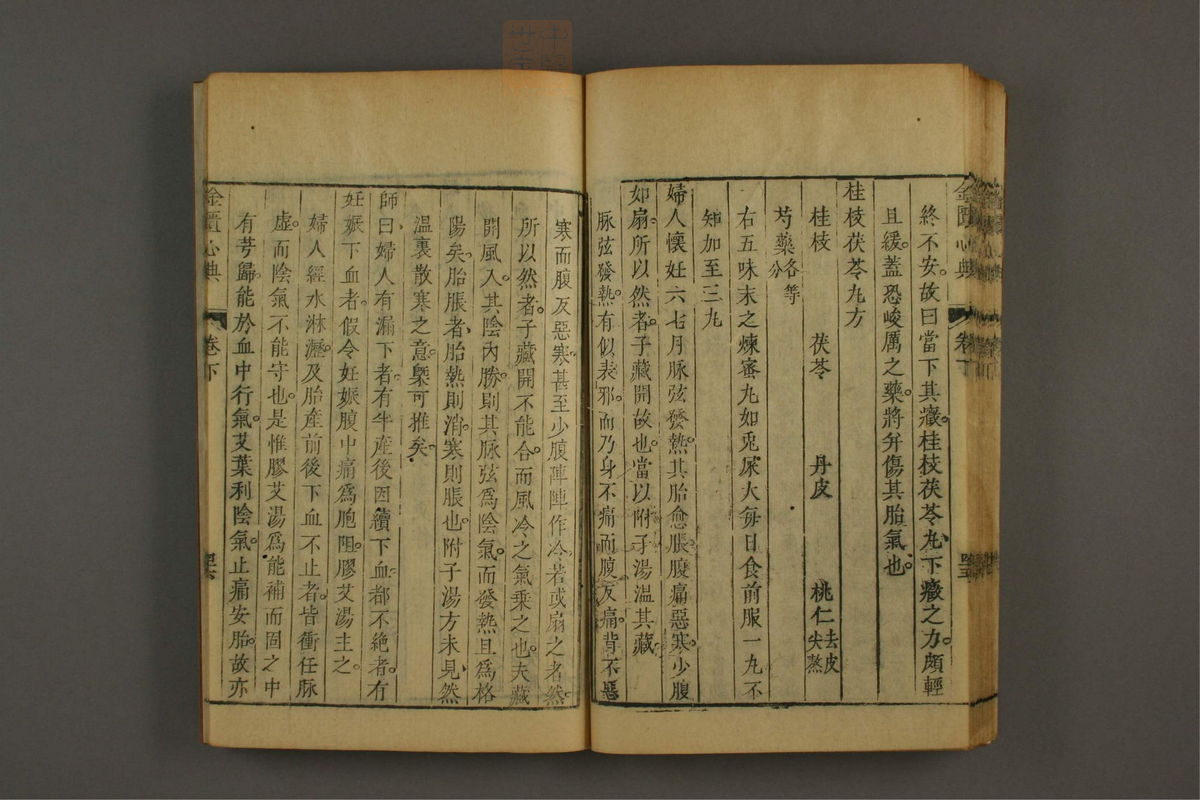 金匱心典
卷下
終不安。故曰當下其癥。桂枝茯苓丸、下癥之力、頗輕
且緩。蓋恐峻厲之藥、將并傷其胎氣也。
桂枝茯苓丸方
桂枝 茯苓 丹皮 桃仁去皮尖熬
芍藥各等分
右五味末之煉蜜丸如兎屎大每日食前服一丸不
知加至三丸
婦人懷妊六七月脉弦發熱。其胎愈脹。腹痛惡寒。少腹
如扇。所以然者。子藏開故也。當以附子湯溫其藏。
脉弦發熱。有似表邪。而乃身不痛而腹反痛。背不惡
寒而腹反惡寒。甚至少腹陣陣作冷若或扇之者然。
所以然者。子藏開不能合。而風冷之氣乘之也。夫藏
開風入。其陰內勝。則其脉弦爲陰氣。而發熱且爲格
陽矣。胎脹者、胎熱則消。寒則脹也。附子湯方未見然
溫裏散寒之意。槩可推矣。
師曰、婦人有漏下者。有半產後因續下血都不絕者。有
妊娠下血者。假令妊娠腹中痛爲胞阻。膠艾湯主之。
婦人經水淋瀝。及胎產前後下血不止者。皆衝任脉
虛。而陰氣不能守也。是惟膠艾湯爲能補而固之中
有芎歸。能於血中行氣。艾葉利陰氣。止痛安胎。故亦
金匱心典
卷下